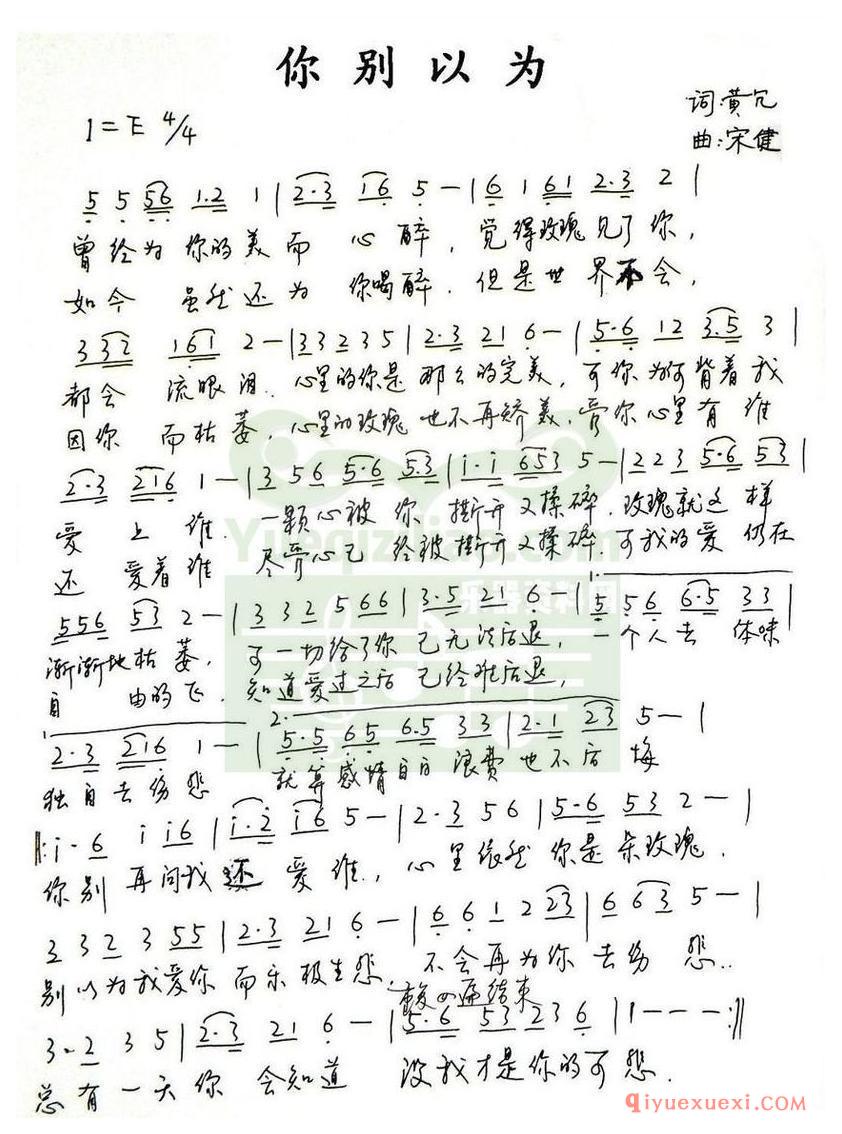 你别以为
1=E 4/4
词:黄冗
曲:宋健
5 5 56 1·2 1 | 2·3 16 5 — | 6 1 61 2·3 2 |
曾经为你的美而 心 醉，觉得玫瑰见了你，
如今 虽然还为 你喝醉．但是世界不会，
332 161 2 — | 33235 | 2·3 21 6 — | 5·6 12 3.5 3 |
都会 流眼泪．心里的你是 那么的完美，可你为何背着我
因你 而枯萎，心里的玫瑰也不再娇美．管你心里有 谁
2·3 216 1 — | 3 56 5·6 5·3 | i·i 653 5 — | 223 5·6 53 |
爱 上 谁．一颗心被 你 撕开又揉碎．玫瑰就这 样
还 爱着谁 尽管心已 经被撕开又揉碎．可我的爱 仍在
556 53 2 — | 332 566 | 3·5 21 6 — | 5 56 6·5 33 |
渐渐地枯萎， 可一切给了你 已无法后退， 一个人去 体味
自 由的飞．知道爱过之后 已经难后退，
1.
2.
2·3 216 1 — | 5·5 65 6.5 33 | 2·1 23 5 — |
独自去伤悲 就算感情白白 浪费 也不后 悔
‖: i· 6 i i6 | i·2 i6 5 — | 2·3 56 | 5·6 53 2 — |
你别 再问我还 爱 谁．，心里依然 你是 朵玫瑰．
332 3 55 | 2·3 21 6 — | 6 61 2 23 | 6 63 5 — |
别以为我爱你 而乐极生悲．不会再为你 去伤 悲．．
3·2 35 | 2·3 21 6 — | 5·6 53 236 | 1 — — — :‖
总有一天你 会知道 没我才是你的可悲．
qiyuexuexi.com